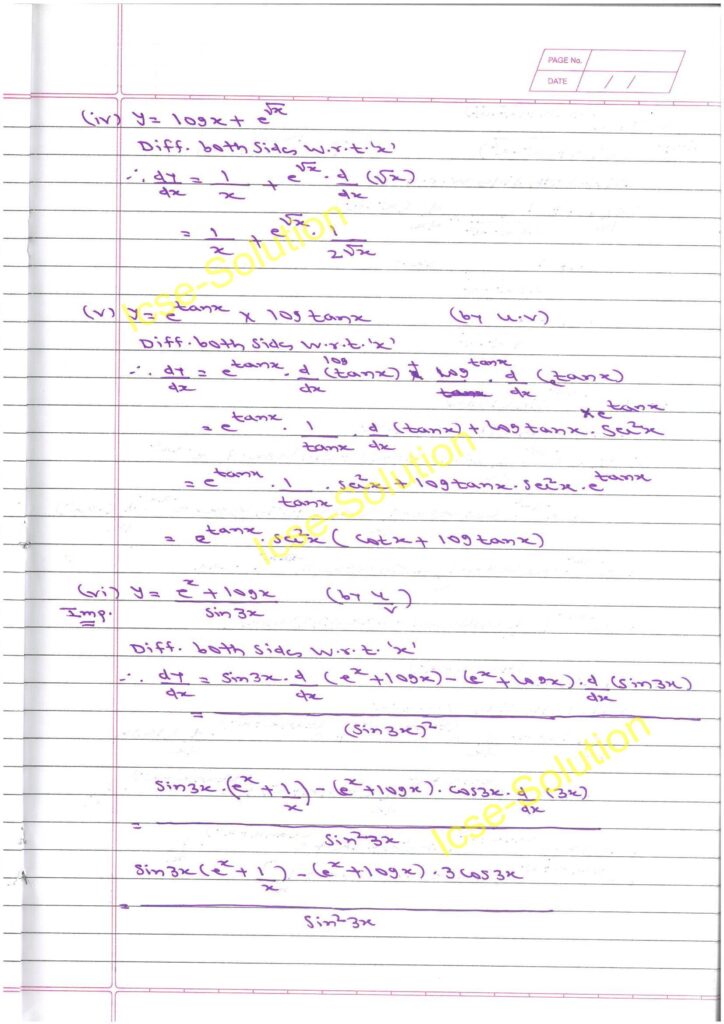 PAGE No.
DATE / /
(iv) y = log x + e^√x
Diff. both sides w.r.t. 'x'
∴ dy/dx = 1/x + e^√x . d/dx (√x)
= 1/x + e^√x . 1/2√x
(v) y = e^tanx × log tanx (by u.v)
Diff. both sides w.r.t. 'x'
∴ dy/dx = e^tanx . d/dx log(tanx) + log tanx . d/dx (e^tanx)
= e^tanx . 1/tanx . d/dx (tanx) + log tanx . sec²x × e^tanx
= e^tanx . 1/tanx . sec²x + log tanx . sec²x . e^tanx
= e^tanx . sec²x ( cotx + log tanx)
(vi) y = e^x + logx / sin 3x (by u/v)
Imp.
Diff. both sides w.r.t. 'x'
∴ dy/dx = sin3x . d/dx (e^x + logx) - (e^x + logx) . d/dx (sin3x)
= / (sin 3x)²
sin3x . (e^x + 1/x) - (e^x + logx) . cos3x . d/dx (3x)
= / sin²3x
sin3x (e^x + 1/x) - (e^x + logx) . 3 cos3x
= / sin²3x
Icse-Solution
Icse-Solution
Icse-Solution